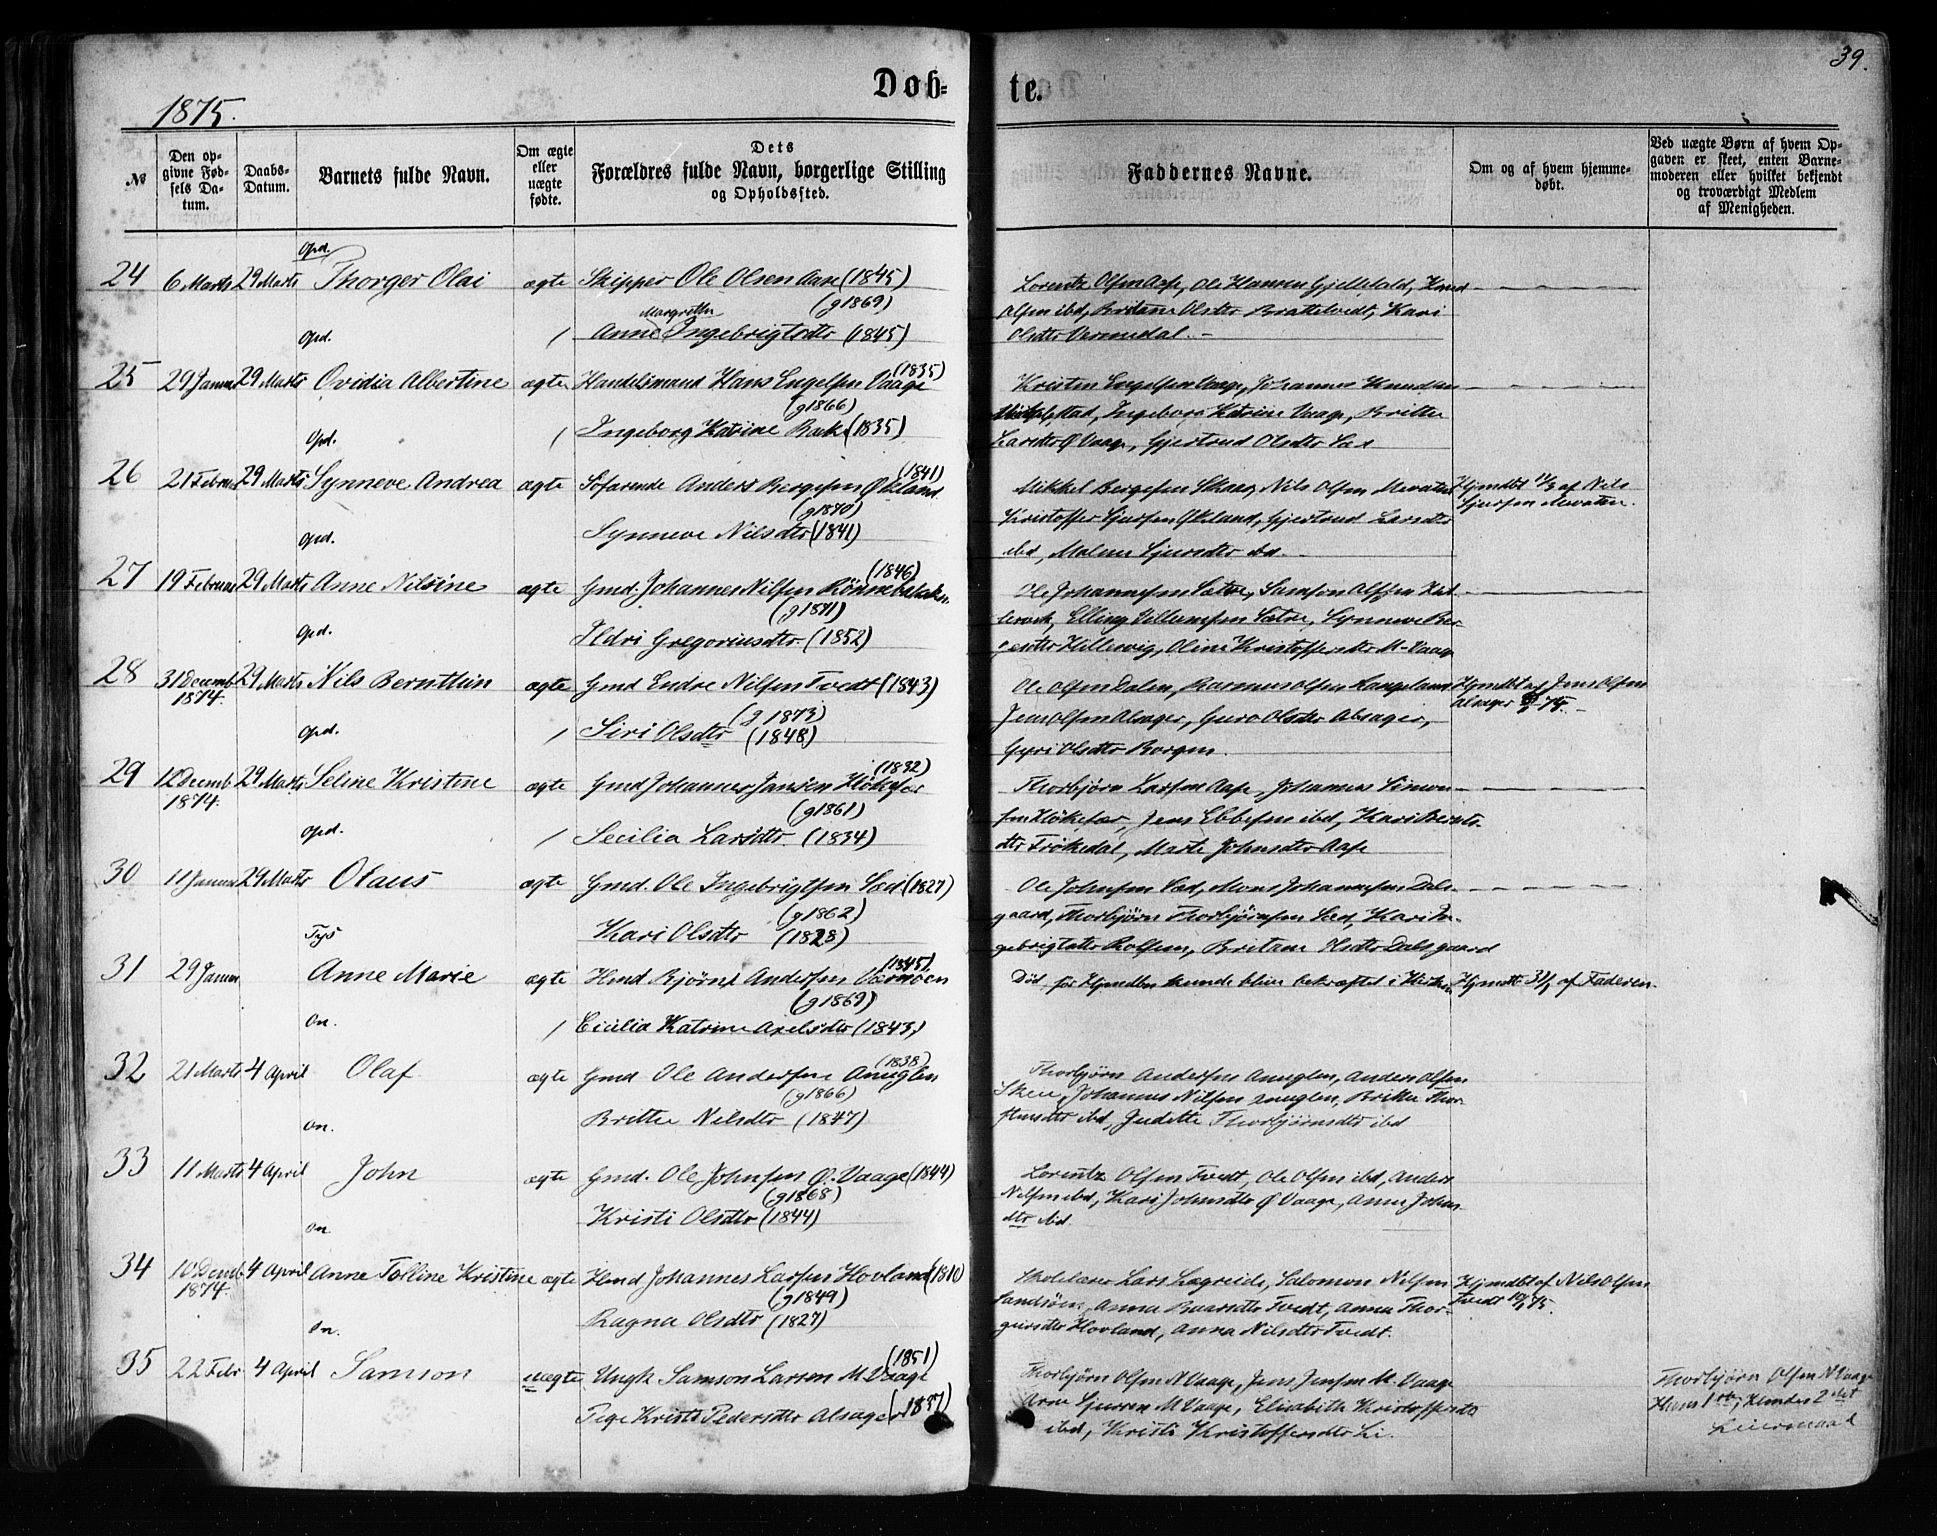 39.
Døb-
te.
1875.
№
Den op-
givne Fød-
sels Da-
tum.
Daabs-
Datum.
Barnets fulde Navn.
Om ægte
eller
uægte
fødte.
Dets
Forældres fulde Navn, borgerlige Stilling
og Opholdssted.
Faddernes Navne.
Om og af hvem hjemme-
døbt.
Ved uægte Børn af hvem Op-
gaven er skeet, enten Barne-
moderen eller hvilket bekjendt
og troværdigt Medlem
af Menigheden.
Opd.
24 6 Marts 29 Marts Thorger Olai ægte Skipper Ole Olsen Aase (1845)
(g1869)
Margrethe
Anne Ingebrigtsdtr (1845)
Lorentz Olsen Aase, Ole Hansen Gjellefald, Knud
Olsen ibd, Olsdtr Brattetvedt, Kari
Olsdtr
Opd.
25 29 Januar 29 Marts Ovidia Albertine ægte Handelsmand Hans Engelsen Vaage (1835)
(g1866)
Ingeborg Katrine (1835)
Kristen Engelsen Vaage, Johannes Knudsen
Ingeborg Katrine Vaage, Britha
Larsdtr Ø Vaage, Gjertrud Olsdtr
Opd.
26 21 Febru 29 Marts Synneve Andrea ægte Søfarende Anders Bergesen Økland (1841)
(g1870)
Synneve Nilsdtr (1841)
Mikkel Bergesen Skaar, Nils Olsen
Kristoffer Sjursen Økland, Gjertrud Larsdtr
ibd, Malene Sjursdtr ibd
Hjmdbt af Nils
Sjursen
Opd.
27 19 Februar 29 Marts Anne Nilsine ægte Gmd. Johannes Nilsen (1846)
(g1871)
Ildri Gregoriusdtr (1852)
Ole Johannesen Sætre, Samson
Elling Villumsen Sætre, Synneve Ber-
gesdtr Hillesvig, Oline Kristoffersdtr M-Vaage
Opd.
28 31 Decemb 1874. 29 Marts Nils Bernthin ægte Gmd Endre Nilsen Tvedt (1843)
(g 1873)
Siri Olsdtr (1848)
Ole Olsen Dalen, Rasmus Olsen
Jens Olsen Alsager, Guro Olsdtr Alsager,
Gyri Olsdtr Borgen.
Hjmdbt af Jens Olsen
Alsager 75.
Opd.
29 12 Decemb 1874. 29 Marts Seline Kristine ægte Gmd Johannes Jansen (1832)
(g1861)
Secilia Larsdtr. (1834)
Thorbjørn Larsen Aase, Johannes Simon-
sen Jens Ebbesen ibd, Kari Bernts-
dtr Frøkedal, Marte Johnsdtr Aase
Opd.
30 11 Januar 29 Marts Olaus ægte Gmd. Ole Ingebrigtsen Sæd (1827)
(g1862)
Kari Olsdtr (1828)
Ole Johnsen Sæd, Mons Johannesen Dals-
gaard, Thorbjørn Thorbjørnsen Sæd, Kari In-
gebrigtsdtr Rolfsen, Dalsgaard
Tys
31 29 Januar Anne Marie ægte Hmd Bjørn Andersen (1845)
(g1869)
Cicilia Katrine Axelsdtr (1843)
Död før Hjmdben kunde blive bekræftet i Kirken
Hjmdbt 31/1 af Faderen.
On.
32 21 Marts 4 April Olaf ægte Gmd Ole Andersen Anuglen (1838)
(g1866)
Britte Nilsdtr (1847)
Thorbjørn Andersen Anuglen, Anders Olsen
Johannes Nilsen Anuglen, Brithe Thor-
stensdtr ibd, Judithe Thorbjørnsdtr ibd
On.
33 11 Marts 4 April John ægte Gmd. Ole Johnsen Ø. Vaage (1844)
(g1868)
Kristi Olsdtr (1844)
Lorentz Olsen Tvedt, Ole Olsen ibd, Anders
Nilsen ibd, Kari Johnsdtr Ø Vaage, Anne Johns-
dtr ibd
On
34 10 Decemb 1874. 4 April Anne Tolline Kristine ægte Hmd Johannes Larsen Hovland (1810)
(g1849)
Ragna Olsdtr (1827)
Skolelærer Lars Lægreide, Salomon Nilsen
Anna Baarsdtr Tvedt, Anna Thor-
geirsdtr Hovland, Anna Nilsdtr Tvedt.
Hjmdbt af Nils Olsen
Tvedt 75.
On.
35 22 Febr 4 April Samson uægte Ungk Samson Larsen M. Vaage (1851)
Pige Kristi Pedersdtr Alsager (1837)
Thorbjørn Olsen N Vaage, Jens Jensen M. Vaage
Arne Sjursen M Vaage, Elisabeth Kristoffersdtr
ibd, Kristi Kristoffersdtr Li.
Thorbjørn Olsen N Vaage
Hans 1ste, Hendes 2det
Leiermaal